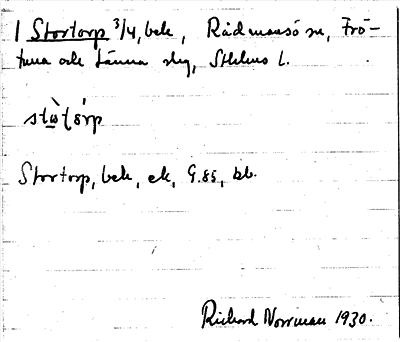 1 Stortorp 3/4, bek, Rådmansö sn, Frö-
tuna och Länna slg, Sthlms l.
Stortorp, bek, ek, G.ss, bb.
Richard Norrman 1930.